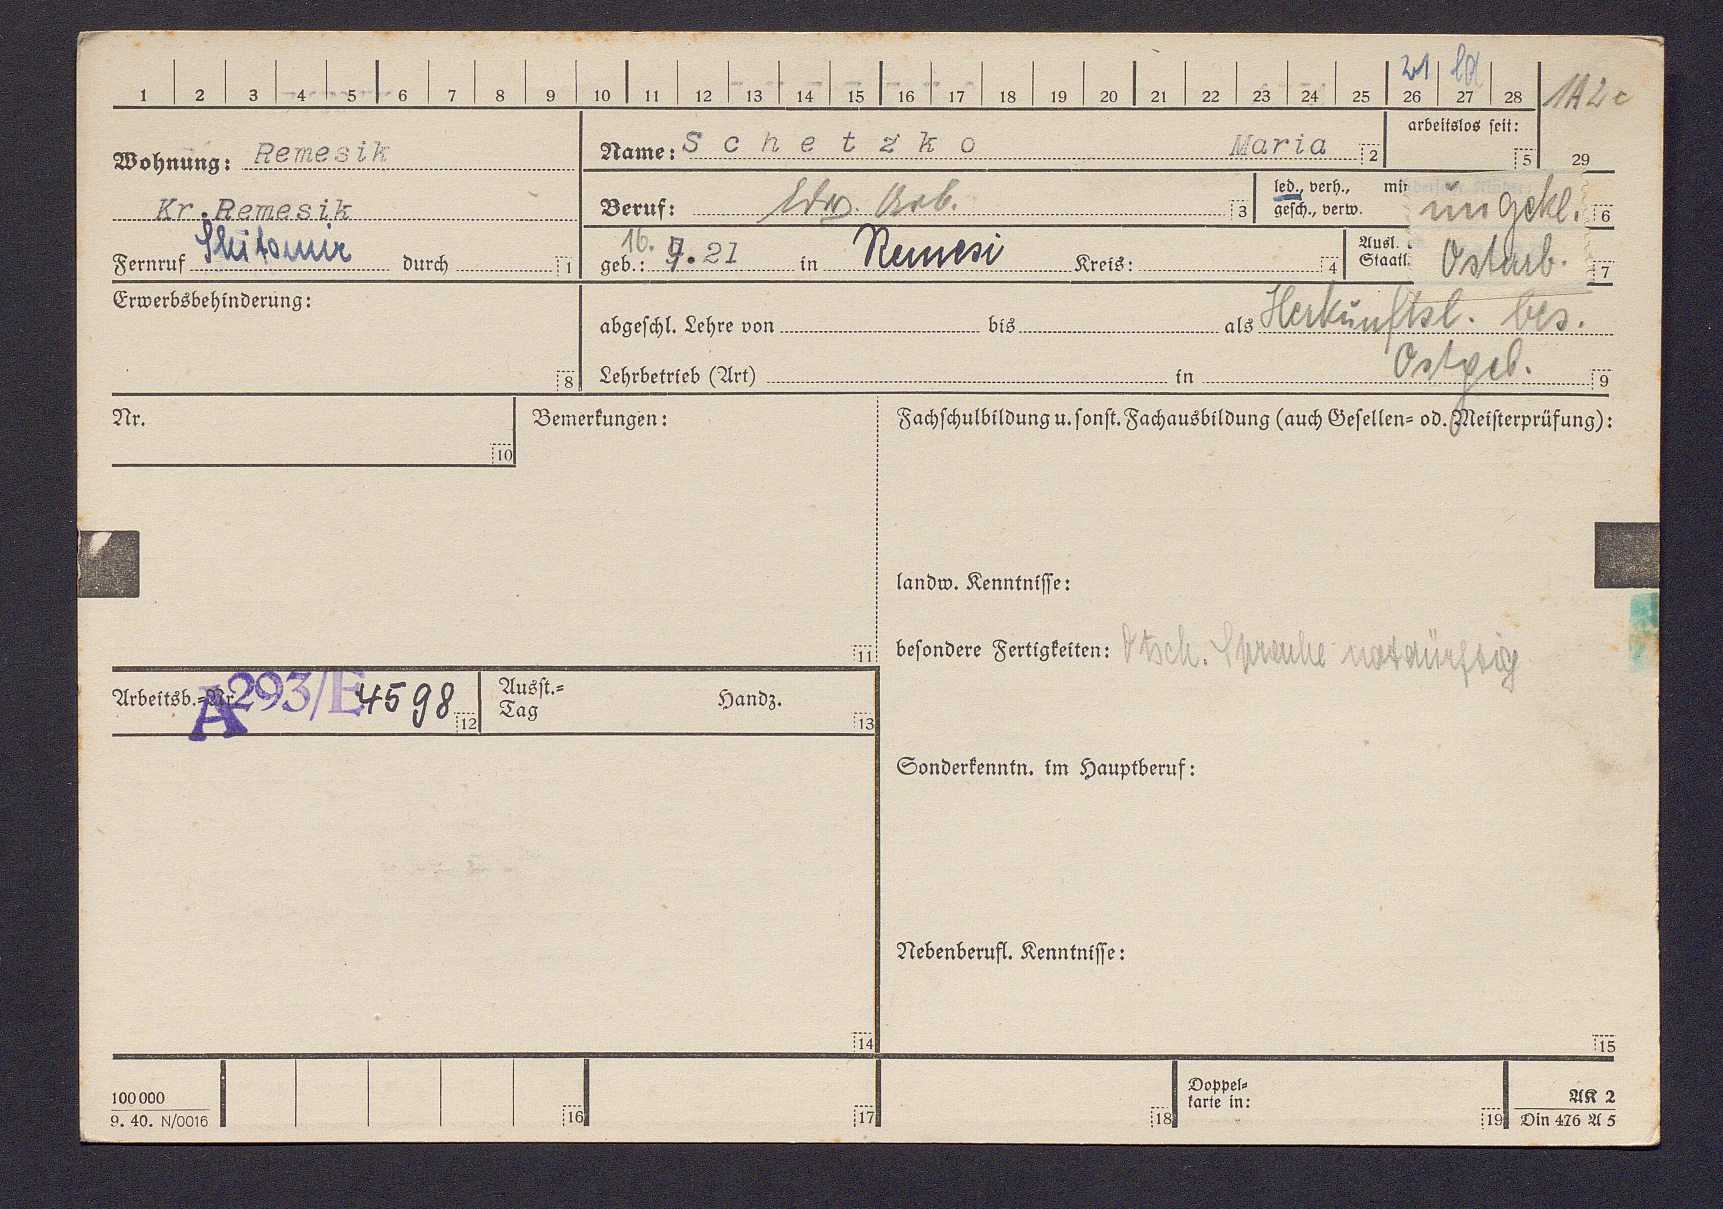 21 ld
1 2 3 4 5 6 7 8 9 10 11 12 13 14 15 16 17 18 19 20 21 22 23 24 25 26 27 28 1A2c
arbeitslos seit:
5 29
Wohnung: Remesik
Name: Schetzko Maria 2
Kr. Remesik
Beruf: Ldw. Arb. 3
led., verh.,
gesch., verw.
ungekl. 6
Shitomir
Fernruf durch 1
geb.: 16. 9.21 in Remesi Kreis: 4
Ausl.
Staatl.
Ostarb. 7
Erwerbsbehinderung:
8
abgeschl. Lehre von bis als Herkunftsl. bes.
Ostgeb.
Lehrbetrieb (Art) in 9
Nr.
10
Bemerkungen:
11
Fachschulbildung u. sonst. Fachausbildung (auch Gesellen- od. Meisterprüfung):
landw. Kenntnisse:
besondere Fertigkeiten: Dtsch. Sprache notdürftig
Arbeitsb.-Nr. A 293/E 4598 12
Ausst.-
Tag
Handz.
13
Sonderkenntn. im Hauptberuf:
Nebenberufl. Kenntnisse:
14
15
100 000
9. 40. N/0016
16
17
18
Doppel-
karte in:
19
AK 2
Din 476 A 5